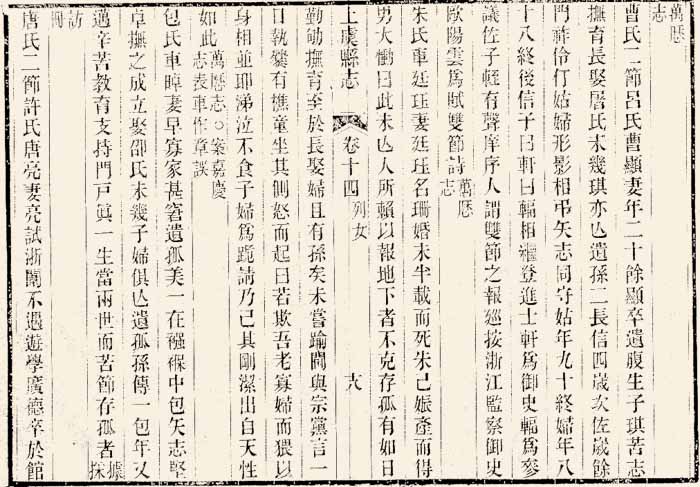 萬歷志
曹氏二節呂氏曹顯妻年二十餘顯卒遺腹生子琪苦志
撫育長娶屠氏未幾琪亦亾遺孫二長信四歲次佐歲餘
門祚伶仃姑婦形影相弔矢志同守姑年九十終婦年八
十八終後信子曰軒曰輻相繼登進士軒爲御史輻爲參
議佐子輕有聲庠序人謂雙節之報廵按浙江監察御史
歐陽雲爲賦雙節詩萬歷志
朱氏車廷珏妻廷珏名珊婚未半載而死朱已娠產而得
男大慟曰此未亾人所賴以報地下者不克存孤有如日
上虞縣志 卷十四 列女
勤劬撫育至於長娶婦且有孫矣未嘗踰閾與宗黨言一
日執爨有樵童坐其側怒而起曰若欺吾老寡婦而猥以
身相並耶涕泣不食子婦爲跪請乃已其剛潔出自天性
如此萬歷志○案嘉慶志表車作章誤
包氏車暐妻早寡家甚窘遺孤美一在襁褓中包矢志堅
卓撫之成立娶邵氏未幾子婦俱亾遺孤孫傳一包年又
邁辛苦教育支持門戸眞一生當兩世而苦節存孤者據採
訪冊
唐氏二節許氏唐亮妻亮試浙闈不遇遊學廣德卒於館